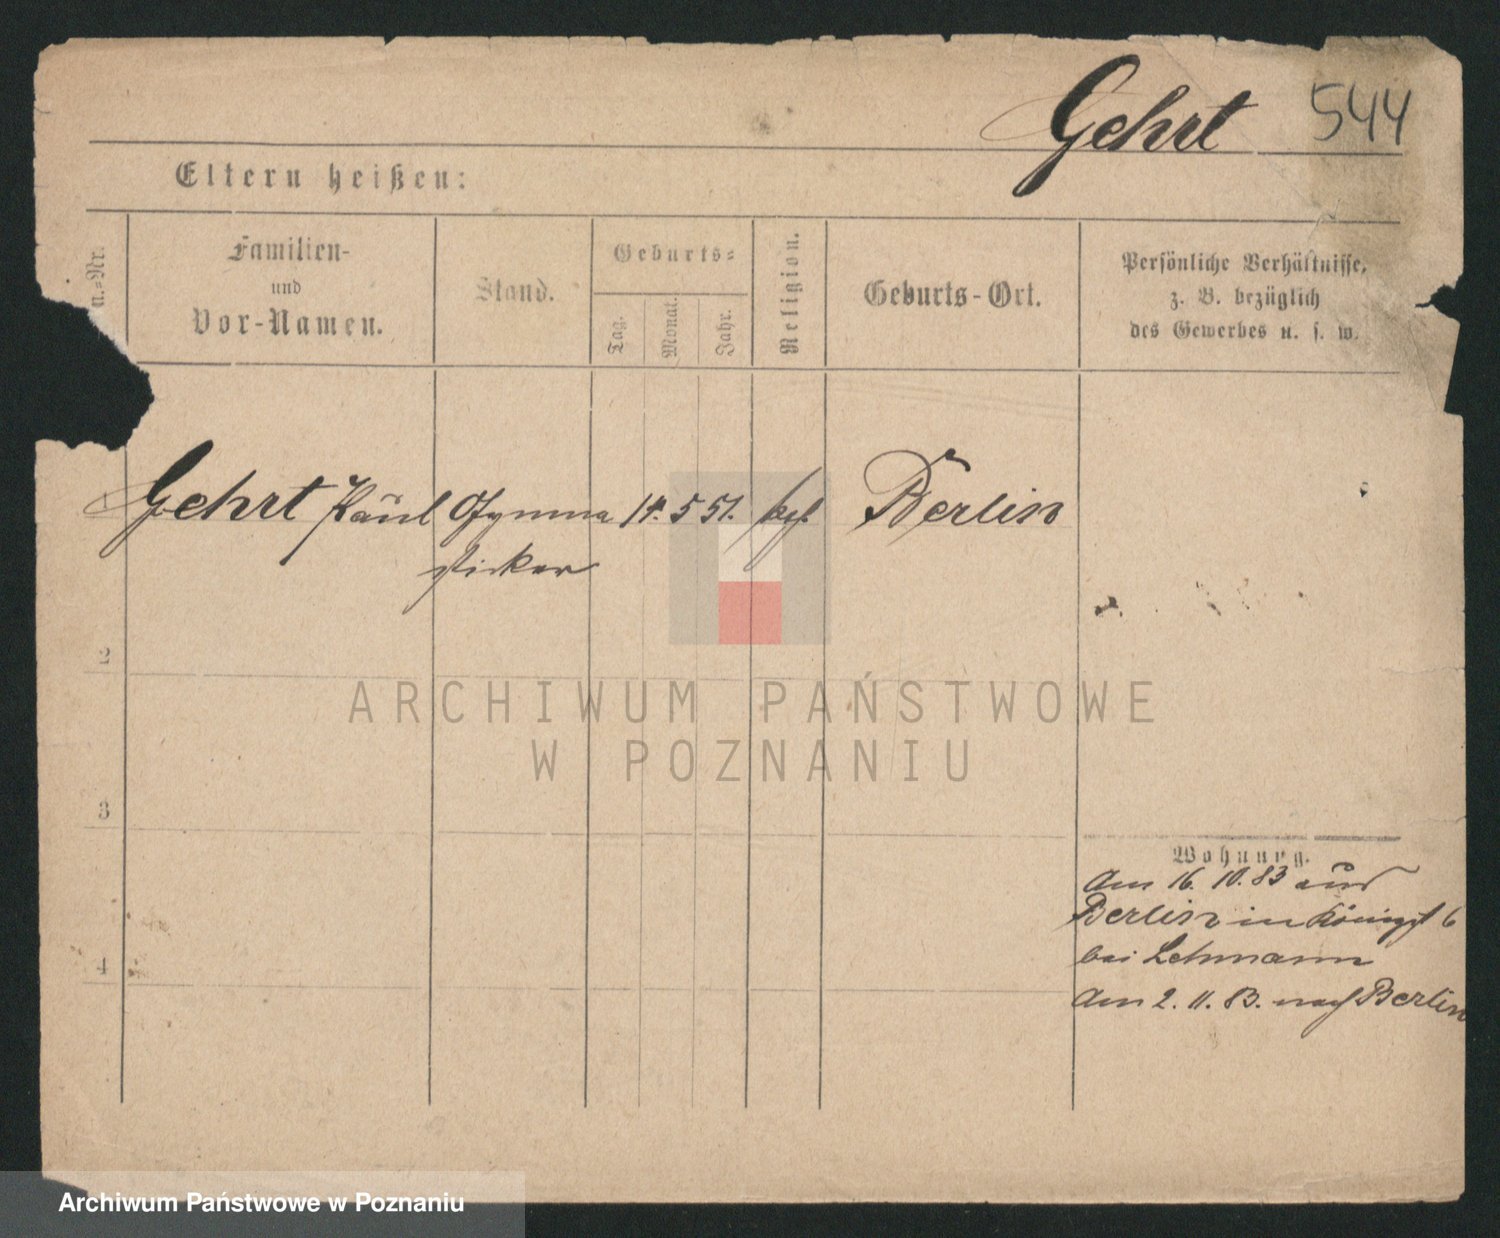 Gehrt 544
Eltern heißen:
a.=Nr.
Familien-
und
Vor-Namen.
Stand.
Geburts=
Tag.
Monat.
Jahr.
Religion.
Geburts-Ort.
Persönliche Verhältnisse,
z. B. bezüglich
des Gewerbes u. s. w.
Gehrt Paul Gymna 14. 5 51. Berlin
stiker
2
3
4
Wohnung.
Am 16. 10. 83 aus
Berlin in Königst 6
bei Lehmann
Am 2. 11. 83. nach Berlin
ARCHIWUM PAŃSTWOWE
W POZNANIU
Archiwum Państwowe w Poznaniu